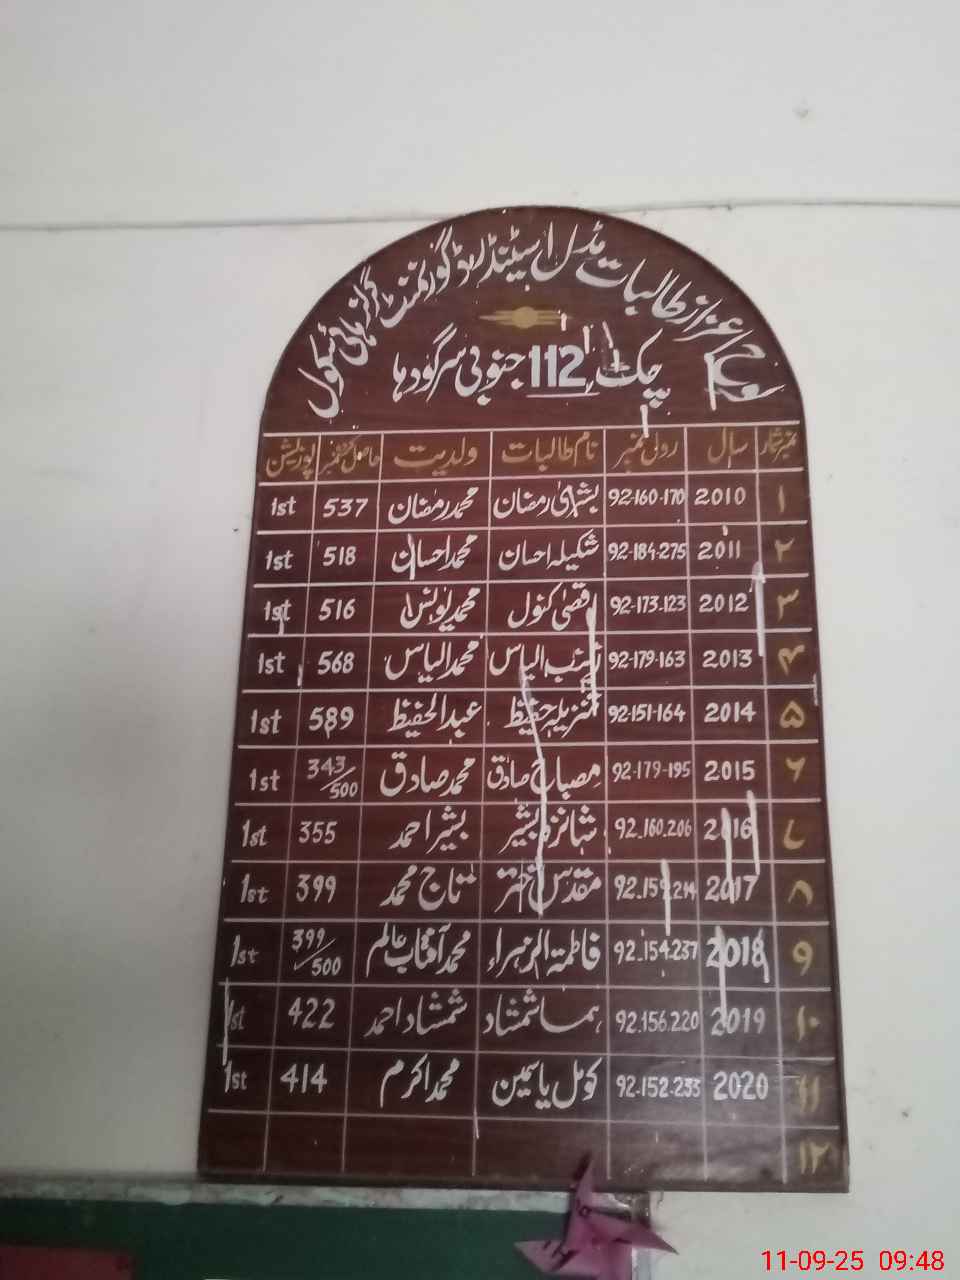 لوح اعزاز طالبات مڈل اسٹینڈرڈ گورنمنٹ گرلز ہائی سکول
چک 112 جنوبی سرگودہا
نمبر شمار سال رولنمبر نام طالبات ولدیت حاصل کردہ نمبر پوزیشن
۱ 2010 92-160-170 بشریٰ رمضان محمد رمضان 537 1st
۲ 2011 92-184-275 شکیلہ احسان محمد احسان 518 1st
۳ 2012 92-173-123 اقصیٰ کنول محمد یونس 516 1st
۴ 2013 92-179-163 زینب الیاس محمد الیاس 568 1st
۵ 2014 92-151-164 تنزیلہ حفیظ عبدالحفیظ 589 1st
۶ 2015 92-179-195 مصباح صادق محمد صادق 343/500 1st
۷ 2016 92-160-206 شانزہ بشیر بشیر احمد 355 1st
۸ 2017 92-159-214 مقدس اختر تاج محمد 399 1st
۹ 2018 92-154-237 فاطمۃ الزہراء محمد آفتاب عالم 399/500 1st
۱۰ 2019 92-156-220 ہما شمشاد شمشاد احمد 422 1st
۱۱ 2020 92-152-233 کومل یاسمین محمد اکرم 414 1st
۱۲
11-09-25 09:48